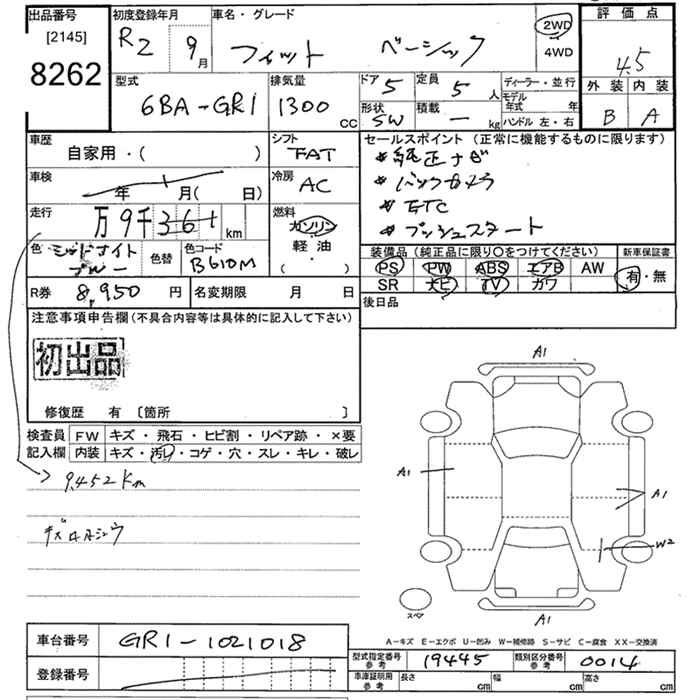 出品番号 初度登録年月 車名・グレード 評価点
[2145] R2 9月 フィット ベーシック 2WD 4WD 4.5
8262
型式 排気量 ドア 5 定員 5人 ディーラー・並行 外装 内装
6BA-GR1 1300 CC 形状 SW 積載 — kg モデル年式 年 B A
ハンドル 左・右
車歴 シフト セールスポイント (正常に機能するものに限ります)
自家用・( ) FAT *純正ナビ
車検 年 月(日) 冷房 AC *バックカメラ
走行 万9千361km 燃料 ガソリン *ETC
軽油・( ) *プッシュスタート
色 ミッドナイトブルー 色替 色コード B610M
装備品 (純正品に限り○をつけてください) 新車保証書
PS PW ABS エアB AW 有・無
SR ナビ TV カワ
R券 8,950円 名変期限 月 日 後日品
注意事項申告欄(不具合内容等は具体的に記入して下さい)
初出品
修復歴 有 [箇所 ]
検査員 FW キズ・飛石・ヒビ割・リペア跡・×要
記入欄 内装 キズ・汚レ・コゲ・穴・スレ・キレ・破レ
9,452Km
A1
A1
A1
W2
スペア
A1
A-キズ E-エクボ U-凹み W-補修跡 S-サビ C-腐食 XX-交換済
車台番号 GR1-1021018
型式指定番号 参考 19445 類別区分番号 参考 0014
登録番号
車庫証明用 参考 長さ cm 幅 cm 高さ cm